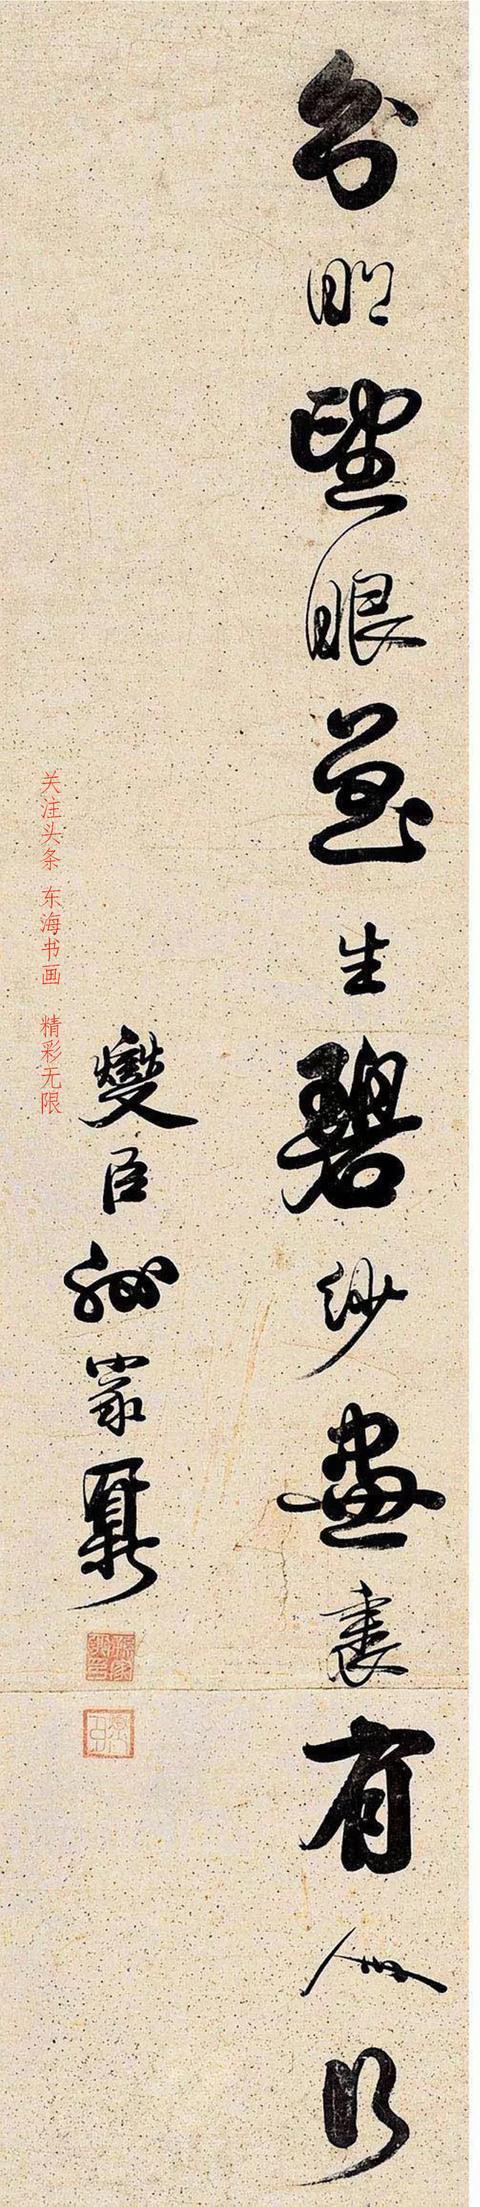 分明望眼生碧紗畫裏有人行
燮臣孫家鼐
关注头条 东海书画 精彩无限